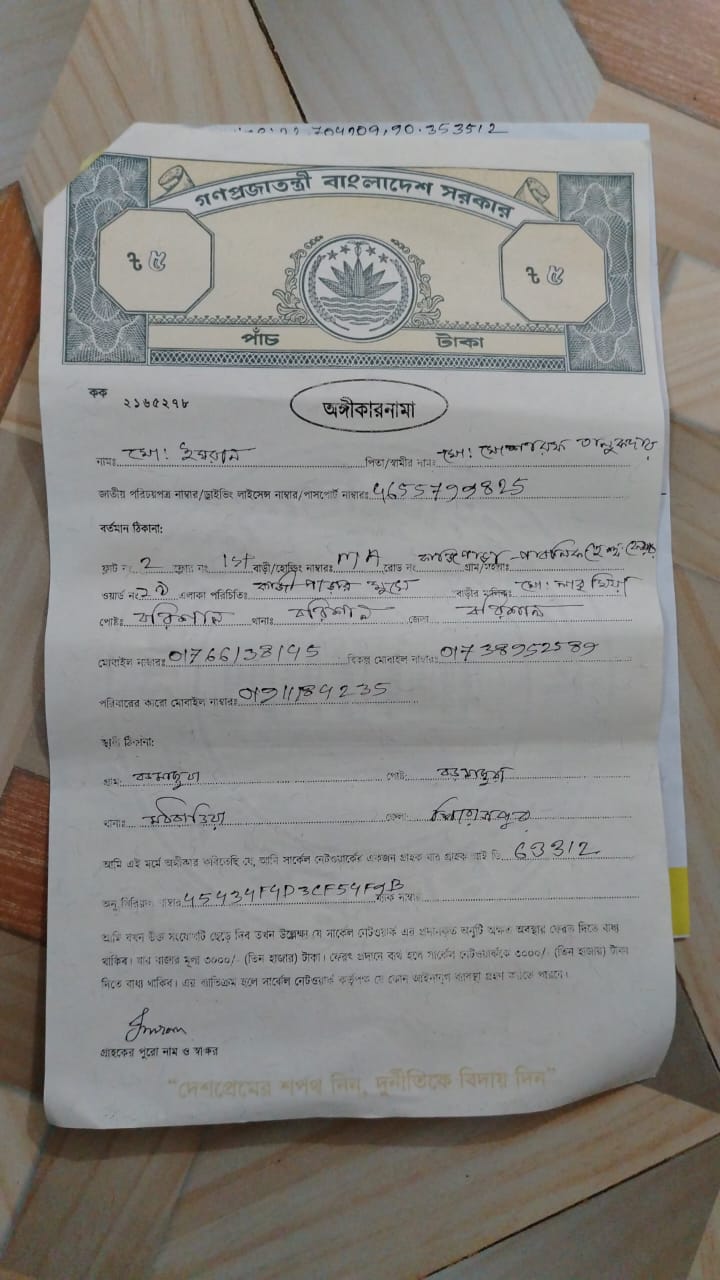 704909,90.353512
গণপ্রজাতন্ত্রী বাংলাদেশ সরকার
৳ ৫ ৳ ৫
পাঁচ টাকা
কক ২১৬৫২৭৮
অঙ্গীকারনামা
নামঃ মো: ইমরান পিতা/স্বামীর নামঃ মো: মোশারফ তালুকদার
জাতীয় পরিচয়পত্র নাম্বার/ড্রাইভিং লাইসেন্স নাম্বার/পাসপোর্ট নাম্বারঃ 4655799825
বর্তমান ঠিকানা:
ফ্লাট নং 2 ফ্লোর নং 1st বাড়ী/হোল্ডিং নাম্বারঃ MA রোড নং
ওয়ার্ড নং 29 এলাকা পরিচিতিঃ বাড়ীর মালিকঃ মো: লালু মিয়া
পোষ্টঃ বরিশাল থানাঃ বরিশাল জেলা বরিশাল
মোবাইল নাম্বারঃ 01766138145 বিকল্প মোবাইল নাম্বারঃ 01738952589
পরিবারের কারো মোবাইল নাম্বারঃ
স্থায়ী ঠিকানা:
গ্রাম: বড়মাছুয়া পোষ্ট: বড়মাছুয়া
থানাঃ মঠবাড়িয়া জেলা: পিরোজপুর
আমি এই মর্মে অঙ্গীকার করিতেছি যে, আমি সার্কেল নেটওয়ার্কের একজন গ্রাহক যার গ্রাহক আই ডি 63312
অনু সিরিয়াল নাম্বার 45434F4D3CF54F9B নাম্বারঃ
আমি যখন উক্ত সংযোগটি ছেড়ে দিব তখন উল্লেখ্য যে সার্কেল নেটওয়ার্ক এর প্রদানকৃত অনুটি অক্ষত অবস্থায় ফেরত দিতে বাধ্য
থাকিব। যার বাজার মূল্য ৩০০০/- (তিন হাজার) টাকা। ফেরৎ প্রদানে ব্যর্থ হলে সার্কেল নেটওয়ার্ককে ৩০০০/- (তিন হাজার) টাকা
দিতে বাধ্য থাকিব। এর ব্যাতিক্রম হলে সার্কেল নেটওয়ার্ক কর্তৃপক্ষ যে কোন আইনানুগ ব্যবস্থা গ্রহণ করতে পারবে।
Imran
গ্রাহকের পুরো নাম ও স্বাক্ষর
“দেশপ্রেমের শপথ নিন, দুর্নীতিকে বিদায় দিন”